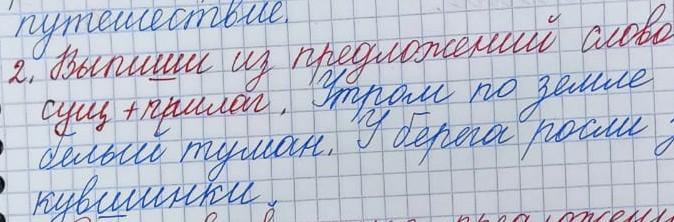 путешествие.
2. Выпиши из предложений слово
сущ + прилаг. Утром по земле
белый туман. У берега росли
кувшинки.